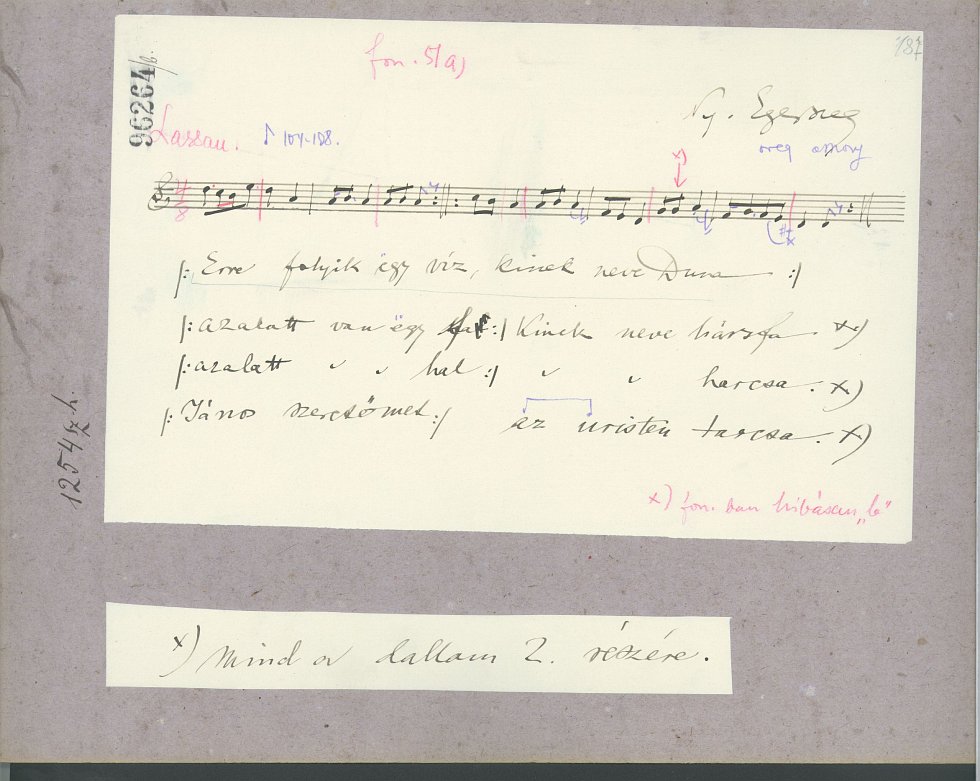 187
96264/b.
fon. 51a)
Ny. Egerszeg
öreg asszony
Lassan. 104-108.
x)
|: Erre folyik ëgy víz, kinek neve Duna :|
|: azalatt van ëgy fa :| Kinek neve hársfa. x)
|: azalatt " " hal :| " " harcsa. x)
|: János szeretőmet :| az úristen tarcsa. x)
x) fon. ban hibásan „b"
1254 h.
x) Mind a dallam 2. részére.